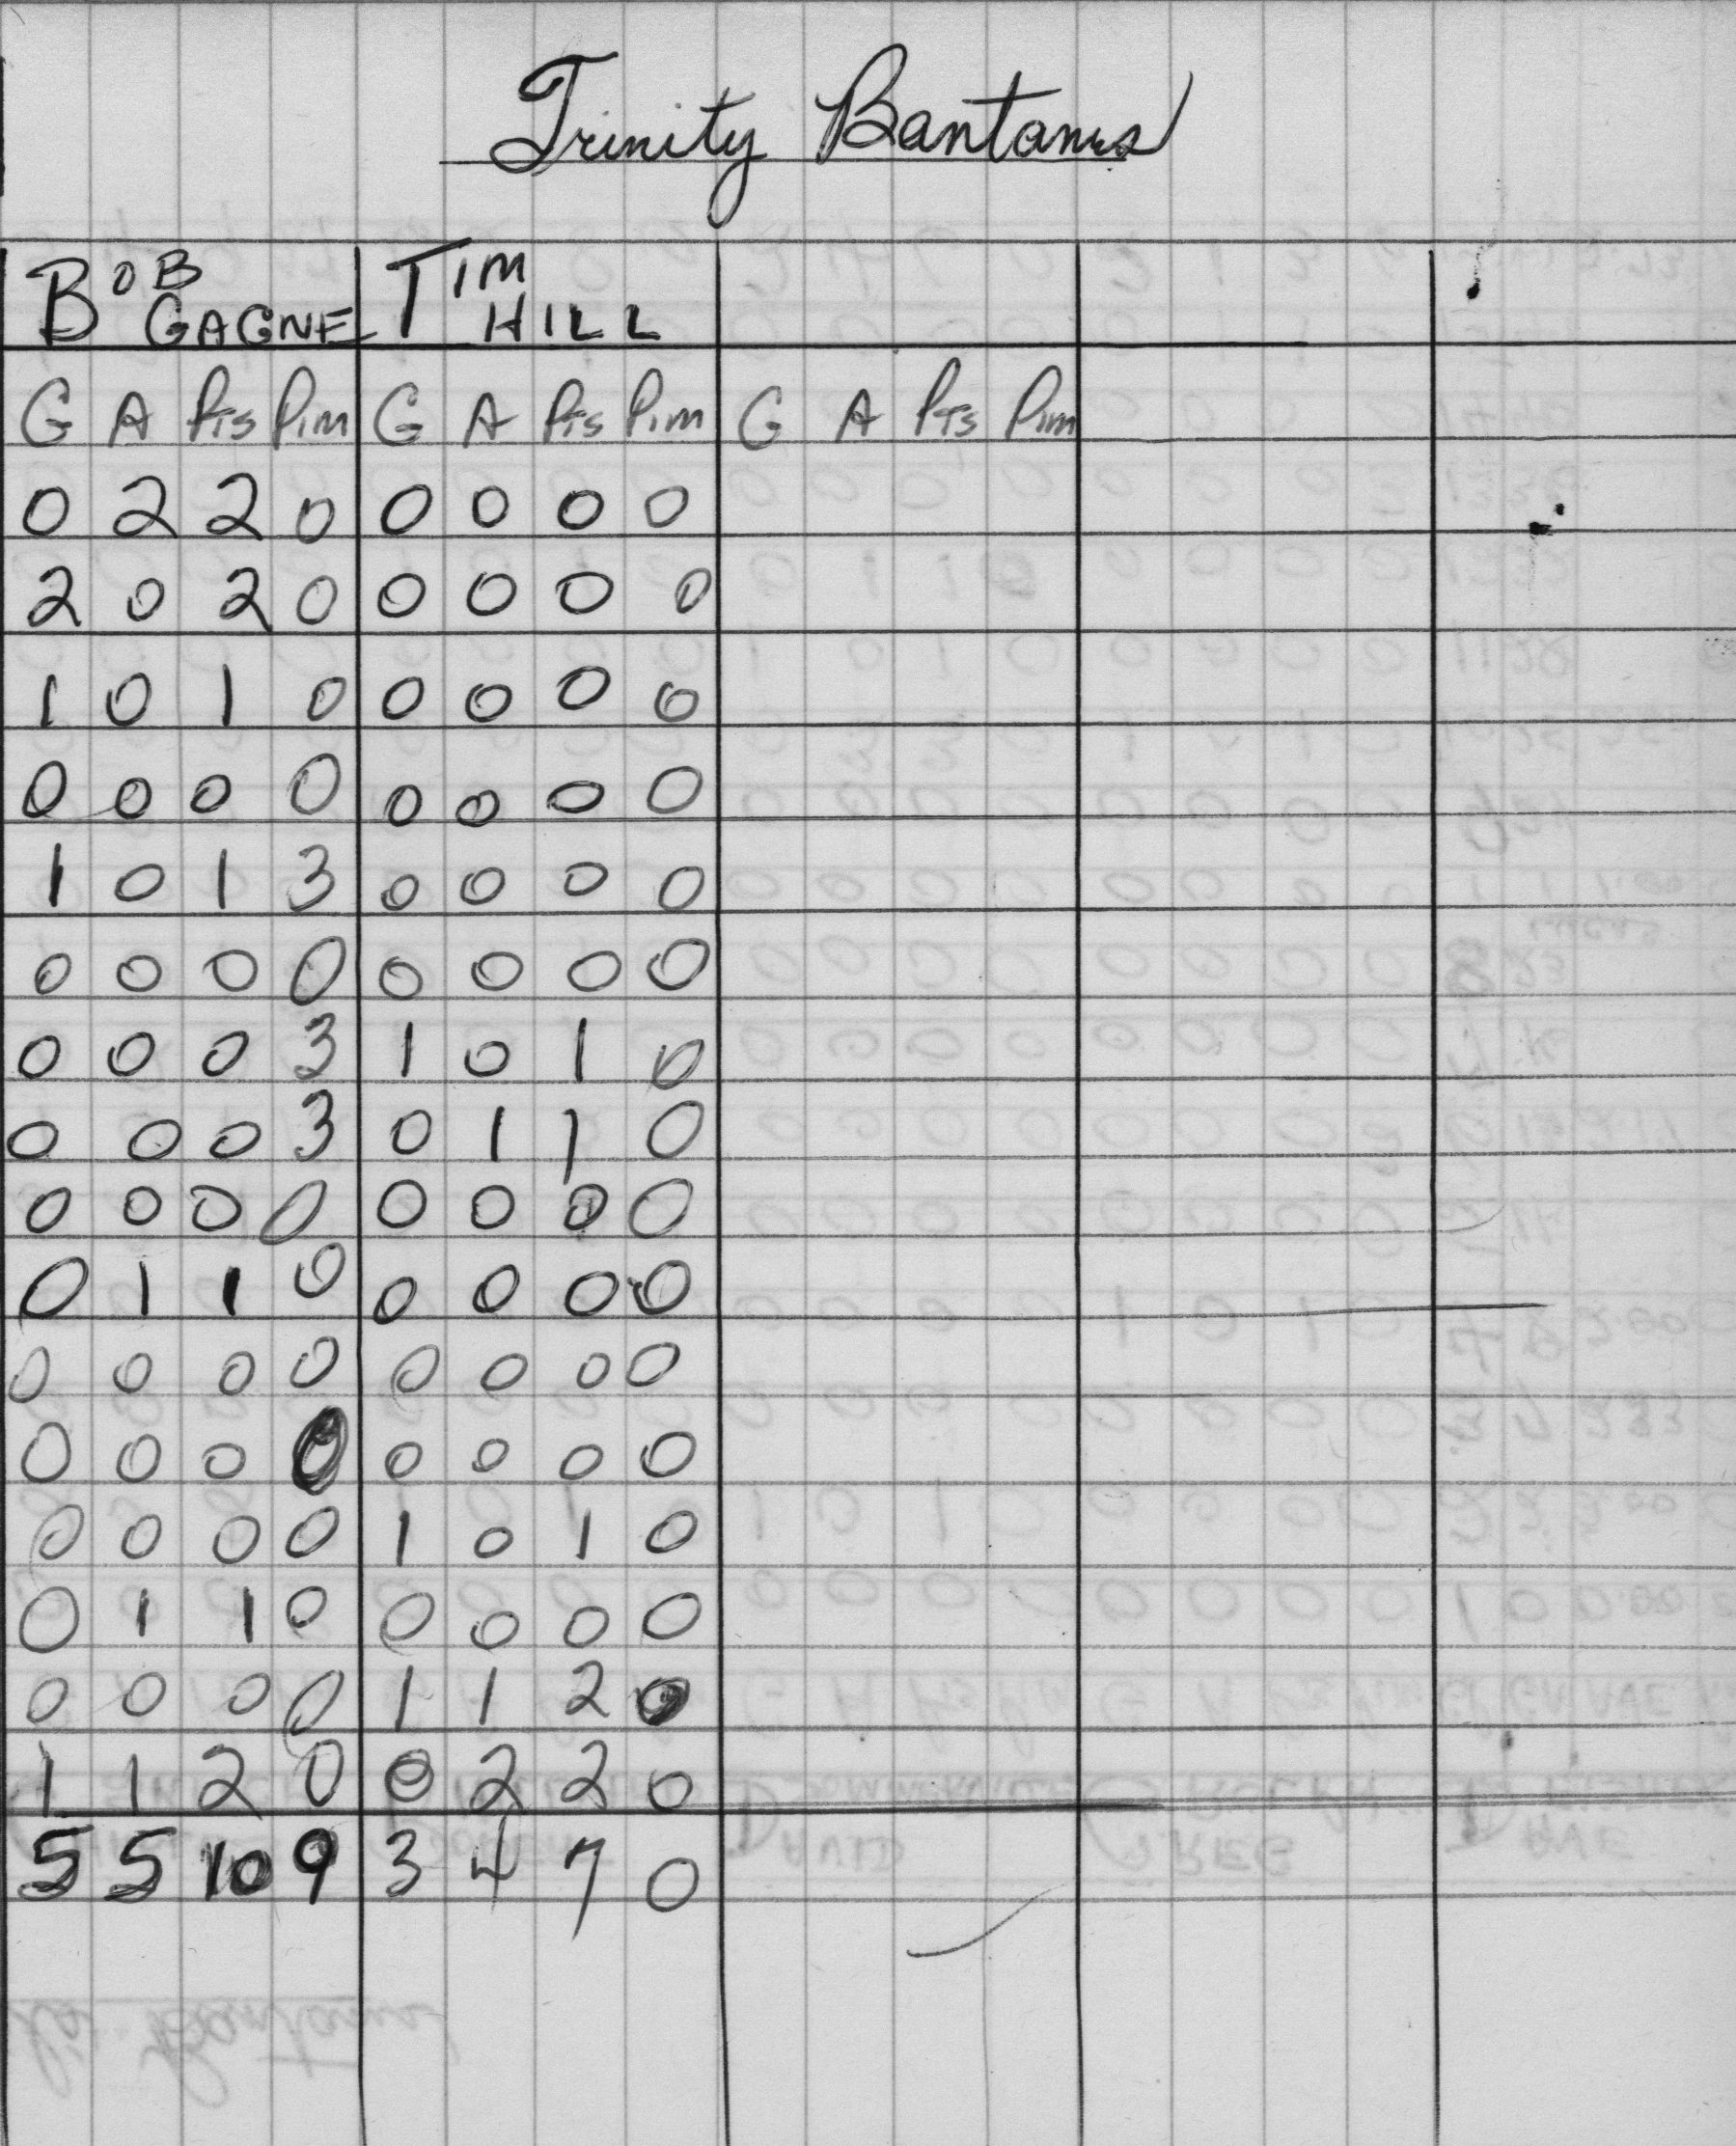 Trinity Bantams
BOB GAGNE TIM HILL
G A Pts Pim G A Pts Pim G A Pts Pim
0 2 2 0 0 0 0 0
2 0 2 0 0 0 0 0
1 0 1 0 0 0 0 0
0 0 0 0 0 0 0 0
1 0 1 3 0 0 0 0
0 0 0 0 0 0 0 0
0 0 0 3 1 0 1 0
0 0 0 3 0 1 1 0
0 0 0 0 0 0 0 0
0 1 1 0 0 0 0 0
0 0 0 0 0 0 0 0
0 0 0 0 0 0 0 0
0 0 0 0 1 0 1 0
0 1 1 0 0 0 0 0
0 0 0 0 1 1 2 0
1 1 2 0 0 2 2 0
5 5 10 9 3 4 7 0